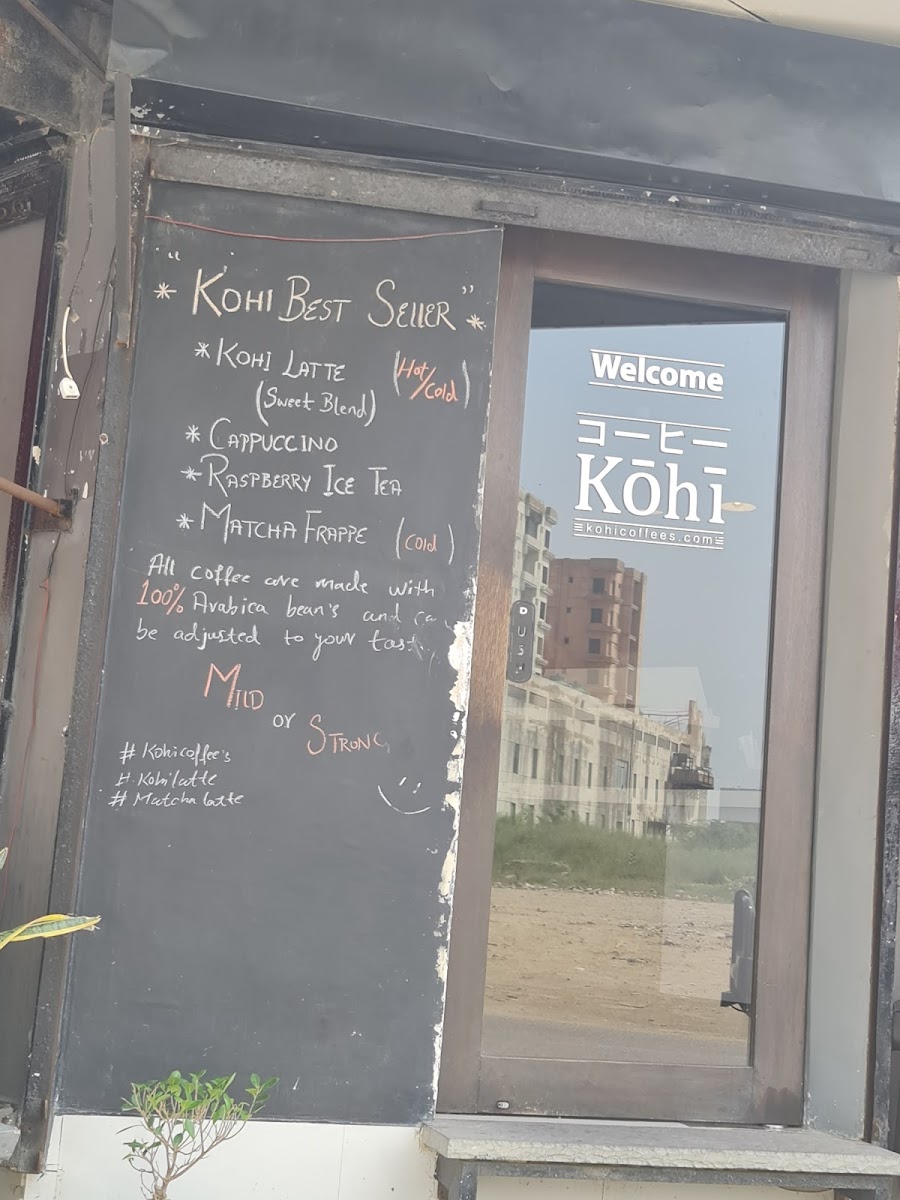 " Kohi Best Seller "
* Kohi Latte (Hot/Cold)
(Sweet Blend)
* Cappuccino
* Raspberry Ice Tea
* Matcha Frappe (Cold)
All coffee are made with
100% Arabica bean's and
be adjusted to your
Mild
or
Strong
# Kohicoffee's
# Kohilatte
# Matcha latte
Welcome
コーヒー
Kōhi
kohicoffees.com
PUSH